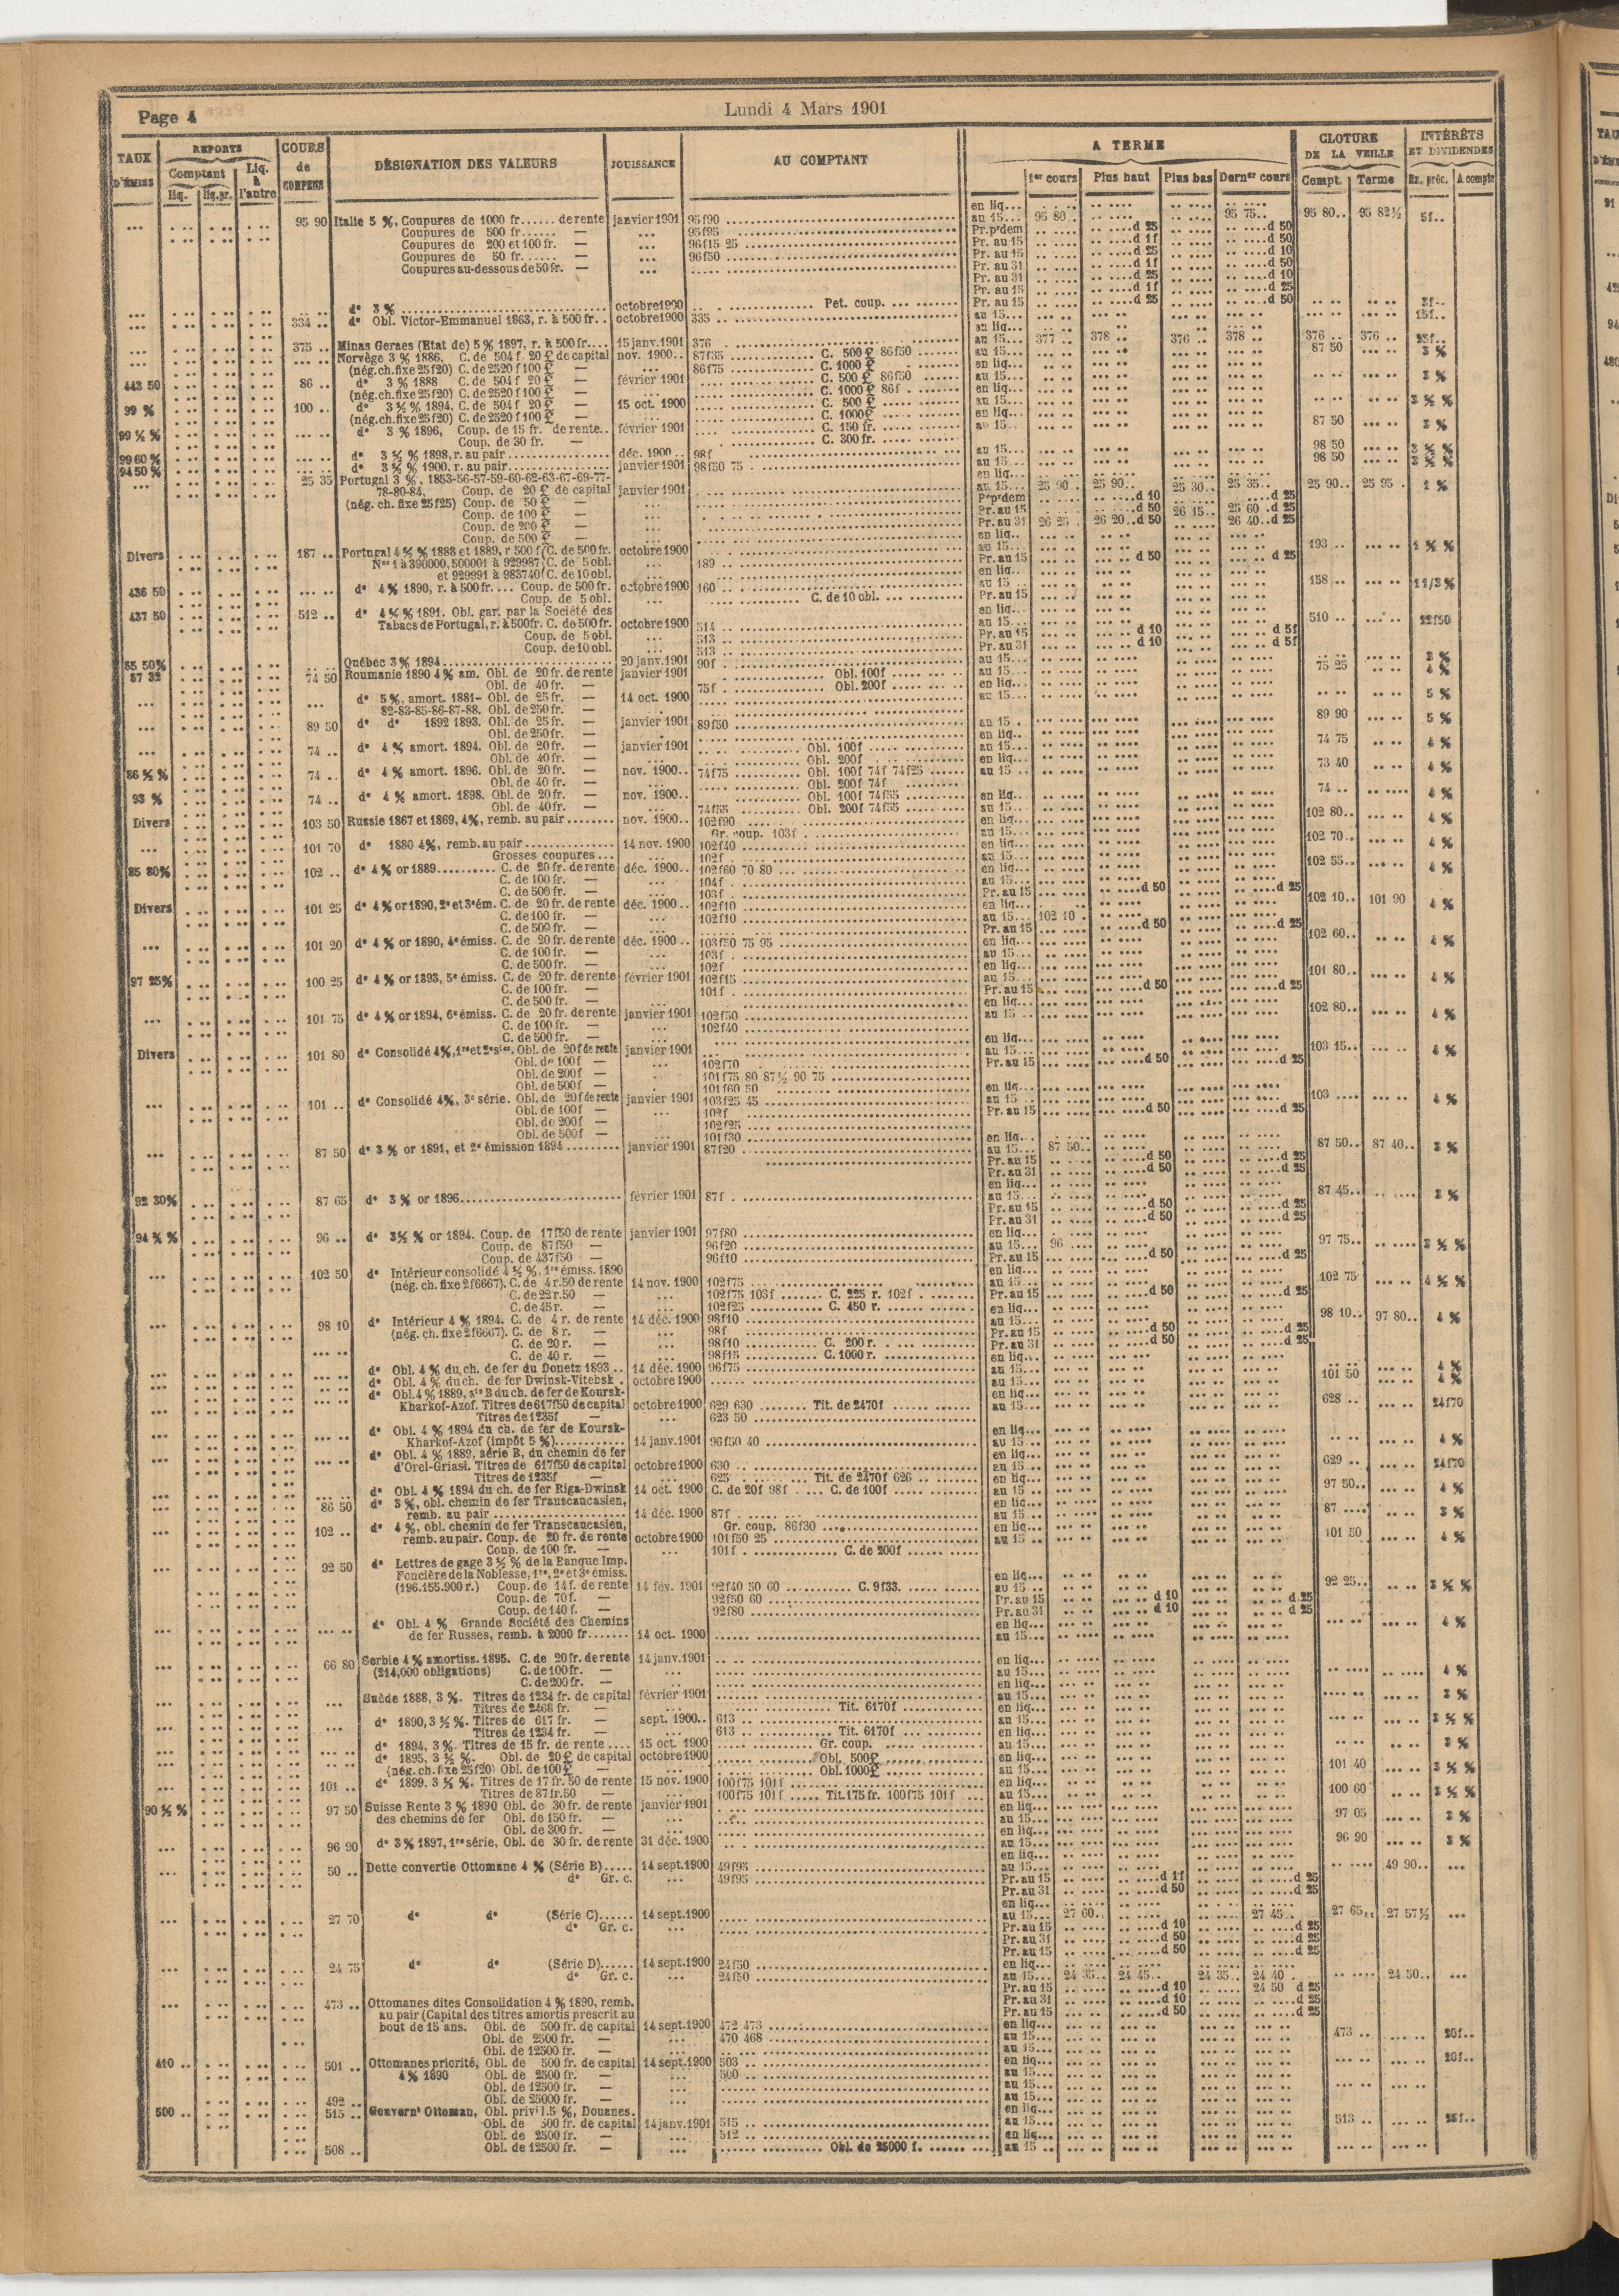 Page 4
Lundi 4 Mars 1901
TAUX D'ÉMISS
REPORTS
Comptant
liq.
liq. pr.
Liq. à l'autre
COURS de COMPENS
DÉSIGNATION DES VALEURS
JOUISSANCE
AU COMPTANT
A TERME
1er cours
Plus haut
Plus bas
Derner cours
CLOTURE DE LA VEILLE
Compt.
Terme
INTÉRÊTS ET DIVIDENDES
Ex. préc.
A compte
95 90 Italie 5 %, Coupures de 1000 fr...... de rente janvier 1901 95f90 au 15... 95 80 95 75.. 95 80.. 95 82½ 5f..
Coupures de 500 fr...... — ... 95f95
Coupures de 200 et 100 fr. — ... 96f15 25
Coupures de 50 fr...... — ... 96f50
Coupures au-dessous de 50 fr. — ...
do 3 % octobre 1900 Pet. coup. 3f..
334 .. do Obl. Victor-Emmanuel 1863, r. à 500 fr.. octobre 1900 335 15f..
375 .. Minas Geraes (Etat de) 5 % 1897, r. à 500 fr.... 15 janv. 1901 376 au 15... 377 378 376 378 376 .. 376 .. 25f..
Norvège 3 % 1886, C. de 504 f 20 £ de capital nov. 1900.. 87f35 C. 500 £ 86f50 87 50 3 %
(nég. ch. fixe 25f20) C. de 2520 f 100 £ — 86f75 C. 1000 £
443 50 86 .. do 3 % 1888 C. de 504 f 20 £ — février 1901 C. 500 £ 86f50 3 %
(nég. ch. fixe 25f20) C. de 2520 f 100 £ — C. 1000 £ 86f
99 % 100 .. do 3 ½ % 1894, C. de 504 f 20 £ — 15 oct. 1900 C. 500 £ 3 ½ %
(nég. ch. fixe 25f20) C. de 2520 f 100 £ — C. 1000 £
do 3 % 1896, Coup. de 15 fr. de rente.. février 1901 C. 150 fr. 87 50 3 %
Coup. de 30 fr. — C. 300 fr.
99 60 % do 3 ½ % 1898, r. au pair déc. 1900.. 98f 98 50 3 ½ %
94 50 % do 3 ½ % 1900, r. au pair janvier 1901 98f50 75 98 50 3 ½ %
25 35 Portugal 3 %, 1853-56-57-59-60-62-63-67-69-77-
78-80-84, Coup. de 20 £ de capital janvier 1901 au 15... 25 90.. 25 90.. 25 30.. 25 35.. 25 90.. 25 95 . 1 %
(nég. ch. fixe 25f25) Coup. de 50 £ — Pr pr dem d 10 d 25
Coup. de 100 £ — Pr. au 15 d 50 26 15.. 25 60 .d 25
Coup. de 200 £ — Pr. au 31 26 25 . 26 20..d 50 26 40..d 25
Coup. de 500 £ —
Divers 187 .. Portugal 4 ½ % 1888 et 1889, r 500 f (C. de 500 fr. octobre 1900 193 .. 1 ½ %
Nos 1 à 390000, 500001 à 929987 C. de 5 obl. ... 189 .. Pr. au 15 d 50 d 25
et 929991 à 983740 C. de 10 obl.
436 50 do 4 % 1890, r. à 500 fr.... Coup. de 500 fr. octobre 1900 160 .. 158 .. 1 1/3 %
Coup. de 5 obl. ... C. de 10 obl.
437 50 512 .. do 4 ½ % 1891. Obl. gar. par la Société des
Tabacs de Portugal, r. à 500 fr. C. de 500 fr. octobre 1900 514 .. 510 .. 22f50
Coup. de 5 obl. ... 513 .. Pr. au 15 d 10 d 5f
Coup. de 10 obl. ... 513 .. Pr. au 31 d 10 d 5f
85 50 % Québec 3 % 1894 20 janv. 1901 90f . 3 %
87 32 74 50 Roumanie 1890 4 % am. Obl. de 20 fr. de rente janvier 1901 Obl. 100f 75 25 4 %
Obl. de 40 fr. — 75f . Obl. 200f
do 5 %, amort. 1881- Obl. de 25 fr. — 14 oct. 1900 5 %
82-83-85-86-87-88. Obl. de 250 fr. —
89 50 do do 1892 1893. Obl. de 25 fr. — janvier 1901 89f50 89 90 5 %
Obl. de 250 fr. —
74 .. do 4 % amort. 1894. Obl. de 20 fr. — janvier 1901 Obl. 100f 74 75 4 %
Obl. de 40 fr. — Obl. 200f
86 ½ % 74 .. do 4 % amort. 1896. Obl. de 20 fr. — nov. 1900.. 74f75 Obl. 100f 74f 74f25 73 40 4 %
Obl. de 40 fr. — Obl. 200f 74f
93 % 74 .. do 4 % amort. 1898. Obl. de 20 fr. — nov. 1900.. Obl. 100f 74f55 74 .. 4 %
Obl. de 40 fr. — 74f55 Obl. 200f 74f55
Divers 103 50 Russie 1867 et 1869, 4 %, remb. au pair nov. 1900.. 102f90 102 80.. 4 %
Gr. coup. 103f
101 70 do 1880 4 %, remb. au pair 14 nov. 1900 102f40 102 70.. 4 %
Grosses coupures... ... 102f
85 80 % 102 .. do 4 % or 1889 C. de 20 fr. de rente déc. 1900.. 102f60 70 80 102 55.. 4 %
C. de 100 fr. — ... 104f
C. de 500 fr. — ... 103f Pr. au 15 d 50 d 25
Divers 101 25 do 4 % or 1890, 2e et 3e ém. C. de 20 fr. de rente déc. 1900.. 102f10 102 10.. 101 90 4 %
C. de 100 fr. — ... 102f10 au 15... 102 10
C. de 500 fr. — ... Pr. au 15 d 50 d 25
101 20 do 4 % or 1890, 4e émiss. C. de 20 fr. de rente déc. 1900.. 103f50 75 95 102 60.. 4 %
C. de 100 fr. — ... 103f
C. de 500 fr. — ... 102f
97 25 % 100 25 do 4 % or 1893, 5e émiss. C. de 20 fr. de rente février 1901 102f15 101 80.. 4 %
C. de 100 fr. — ... 101f Pr. au 15 d 50 d 25
C. de 500 fr. —
101 75 do 4 % or 1894, 6e émiss. C. de 20 fr. de rente janvier 1901 102f50 102 80.. 4 %
C. de 100 fr. — ... 102f40
C. de 500 fr. —
Divers 101 80 do Consolidé 4 %, 1re et 2e sies. Obl. de 20f de rente janvier 1901 103 15.. 4 %
Obl. de 100f — ... 102f70 Pr. au 15 d 50 d 25
Obl. de 200f — 101f75 80 87½ 90 75
Obl. de 500f — 101f60 50
101 .. do Consolidé 4 %, 3e série. Obl. de 20f de rente janvier 1901 103f25 45 103 4 %
Obl. de 100f — ... 102f Pr. au 15 d 50 d 25
Obl. de 200f — 102f25
Obl. de 500f — 101f30
87 50 do 3 % or 1891, et 2e émission 1894 janvier 1901 87f20 au 15... 87 50.. 87 50.. 87 40.. 3 %
Pr. au 15 d 50 d 25
Pr. au 31 d 50 d 25
92 30 % 87 65 do 3 % or 1896 février 1901 87f 87 45.. 3 %
Pr. au 15 d 50 d 25
Pr. au 31 d 50 d 25
96 .. do 3½ % or 1894. Coup. de 17f50 de rente janvier 1901 97f80 97 75.. 3 ½ %
Coup. de 87f50 — 96f20 au 15... 96
Coup. de 437f50 — 96f10 Pr. au 15 d 50 d 25
102 50 do Intérieur consolidé 4 ½ %, 1re émiss. 1890
(nég. ch. fixe 2f6667). C. de 4 r. 50 de rente 14 nov. 1900 102f75 102 75 4 ½ %
C. de 22 r. 50 — ... 102f75 103f C. 225 r. 102f Pr. au 15 d 50 d 25
C. de 45 r. — ... 102f25 C. 450 r.
98 10 do Intérieur 4 % 1894. C. de 4 r. de rente 14 déc. 1900 98f10 98 10.. 97 80.. 4 %
(nég. ch. fixe 2f6667). C. de 8 r. — ... 98f Pr. au 15 d 50 d 25
C. de 20 r. — ... 98f10 C. 200 r. Pr. au 31 d 50 d 25
C. de 40 r. — ... 98f15 C. 1000 r.
do Obl. 4 % du ch. de fer du Donetz 1893 .. 14 déc. 1900 96f75 4 %
do Obl. 4 % du ch. de fer Dwinsk-Vitebsk . octobre 1900 101 50 4 %
do Obl. 4 % 1889, sie B du ch. de fer de Koursk-
Kharkof-Azof. Titres de 617f50 de capital octobre 1900 629 630 Tit. de 2470f 628 .. 24f70
Titres de 1235f — ... 623 50
do Obl. 4 % 1894 du ch. de fer de Koursk-
Kharkof-Azof (impôt 5 %) 14 janv. 1901 96f50 40 4 %
do Obl. 4 % 1889, série B, du chemin de fer
d'Orel-Griasi. Titres de 617f50 de capital octobre 1900 630 .. 629 .. 24f70
Titres de 1235f — ... 625 Tit. de 2470f 626
do Obl. 4 % 1894 du ch. de fer Riga-Dwinsk 14 oct. 1900 C. de 20f 98f C. de 100f 97 50.. 4 %
86 50 do 3 %, obl. chemin de fer Transcaucasien,
remb. au pair 14 déc. 1900 87f 87 3 %
102 .. do 4 %, obl. chemin de fer Transcaucasien, Gr. coup. 86f30
remb. au pair. Coup. de 20 fr. de rente octobre 1900 101f50 25 101 50 4 %
Coup. de 100 fr. — ... 101f C. de 200f
92 50 do Lettres de gage 3 ½ % de la Banque Imp.
Foncière de la Noblesse, 1re, 2e et 3e émiss.
(196.155.900 r.) Coup. de 14 f. de rente 14 fév. 1901 92f40 50 60 C. 9f33. 92 25.. 3 ½ %
Coup. de 70 f. — 92f50 60 Pr. au 15 d 10 d 25
Coup. de 140 f. — 92f80 Pr. au 31 d 10 d 25
do Obl. 4 % Grande Société des Chemins
de fer Russes, remb. à 2000 fr 14 oct. 1900 4 %
66 80 Serbie 4 % amortiss. 1895. C. de 20 fr. de rente 14 janv. 1901 4 %
(214,000 obligations) C. de 100 fr. — ...
C. de 200 fr. —
Suède 1888, 3 %. Titres de 1234 fr. de capital février 1901 3 %
Titres de 2468 fr. — Tit. 6170f
do 1890, 3 ½ %. Titres de 617 fr. — sept. 1900.. 613 .. 3 ½ %
Titres de 1234 fr. — 613 .. Tit. 6170f
do 1894, 3 %. Titres de 15 fr. de rente .... 15 oct. 1900 Gr. coup. 3 %
do 1895, 3 ½ %. Obl. de 20 £ de capital octobre 1900 Obl. 500£ 101 40 3 ½ %
(nég. ch. fixe 25f20) Obl. de 100 £ — Obl. 1000£
101 .. do 1899, 3 ½ %. Titres de 17 fr. 50 de rente 15 nov. 1900 100f75 101f 100 60 3 ½ %
Titres de 87 fr. 50 — 100f75 101f Tit. 175 fr. 100f75 101f
90 ½ % 97 50 Suisse Rente 3 % 1890 Obl. de 30 fr. de rente janvier 1901 97 05 3 %
des chemins de fer Obl. de 150 fr. —
Obl. de 300 fr. —
96 90 do 3 % 1897, 1re série, Obl. de 30 fr. de rente 31 déc. 1900 96 90 3 %
50 .. Dette convertie Ottomane 4 % (Série B) 14 sept. 1900 49f95 49 90..
do Gr. c. ... 49f95 Pr. au 15 d 1f d 25
Pr. au 31 d 50 d 25
27 70 do do (Série C) 14 sept. 1900 au 15... 27 60.. 27 45.. 27 65.. 27 57½
do Gr. c. ... Pr. au 15 d 10 d 25
Pr. au 31 d 50 d 25
Pr. au 15 d 50 d 25
24 75 do do (Série D) 14 sept. 1900 24f50
do Gr. c. ... 24f50 au 15... 24 35.. 24 45.. 24 35.. 24 40 24 50..
Pr. au 15 d 10 24 50 d 25
473 .. Ottomanes dites Consolidation 4 % 1890, remb. Pr. au 31 d 10 d 25
au pair (Capital des titres amortis prescrit au Pr. au 15 d 50 d 25
bout de 15 ans. Obl. de 500 fr. de capital 14 sept. 1900 472 473 473 .. 20f..
Obl. de 2500 fr. — ... 470 468
Obl. de 12500 fr. —
410 .. 501 .. Ottomanes priorité, Obl. de 500 fr. de capital 14 sept. 1900 503 .. 20f..
4 % 1890 Obl. de 2500 fr. — ... 500 ..
Obl. de 12500 fr. — ...
492 .. Obl. de 25000 fr. — ...
500 .. 515 .. Gouvernt Ottoman, Obl. privil. 5 %, Douanes.
Obl. de 500 fr. de capital 14 janv. 1901 515 .. 513 .. 25f..
Obl. de 2500 fr. — ... 512 ..
508 .. Obl. de 12500 fr. — ... Obl. de 25000 f.